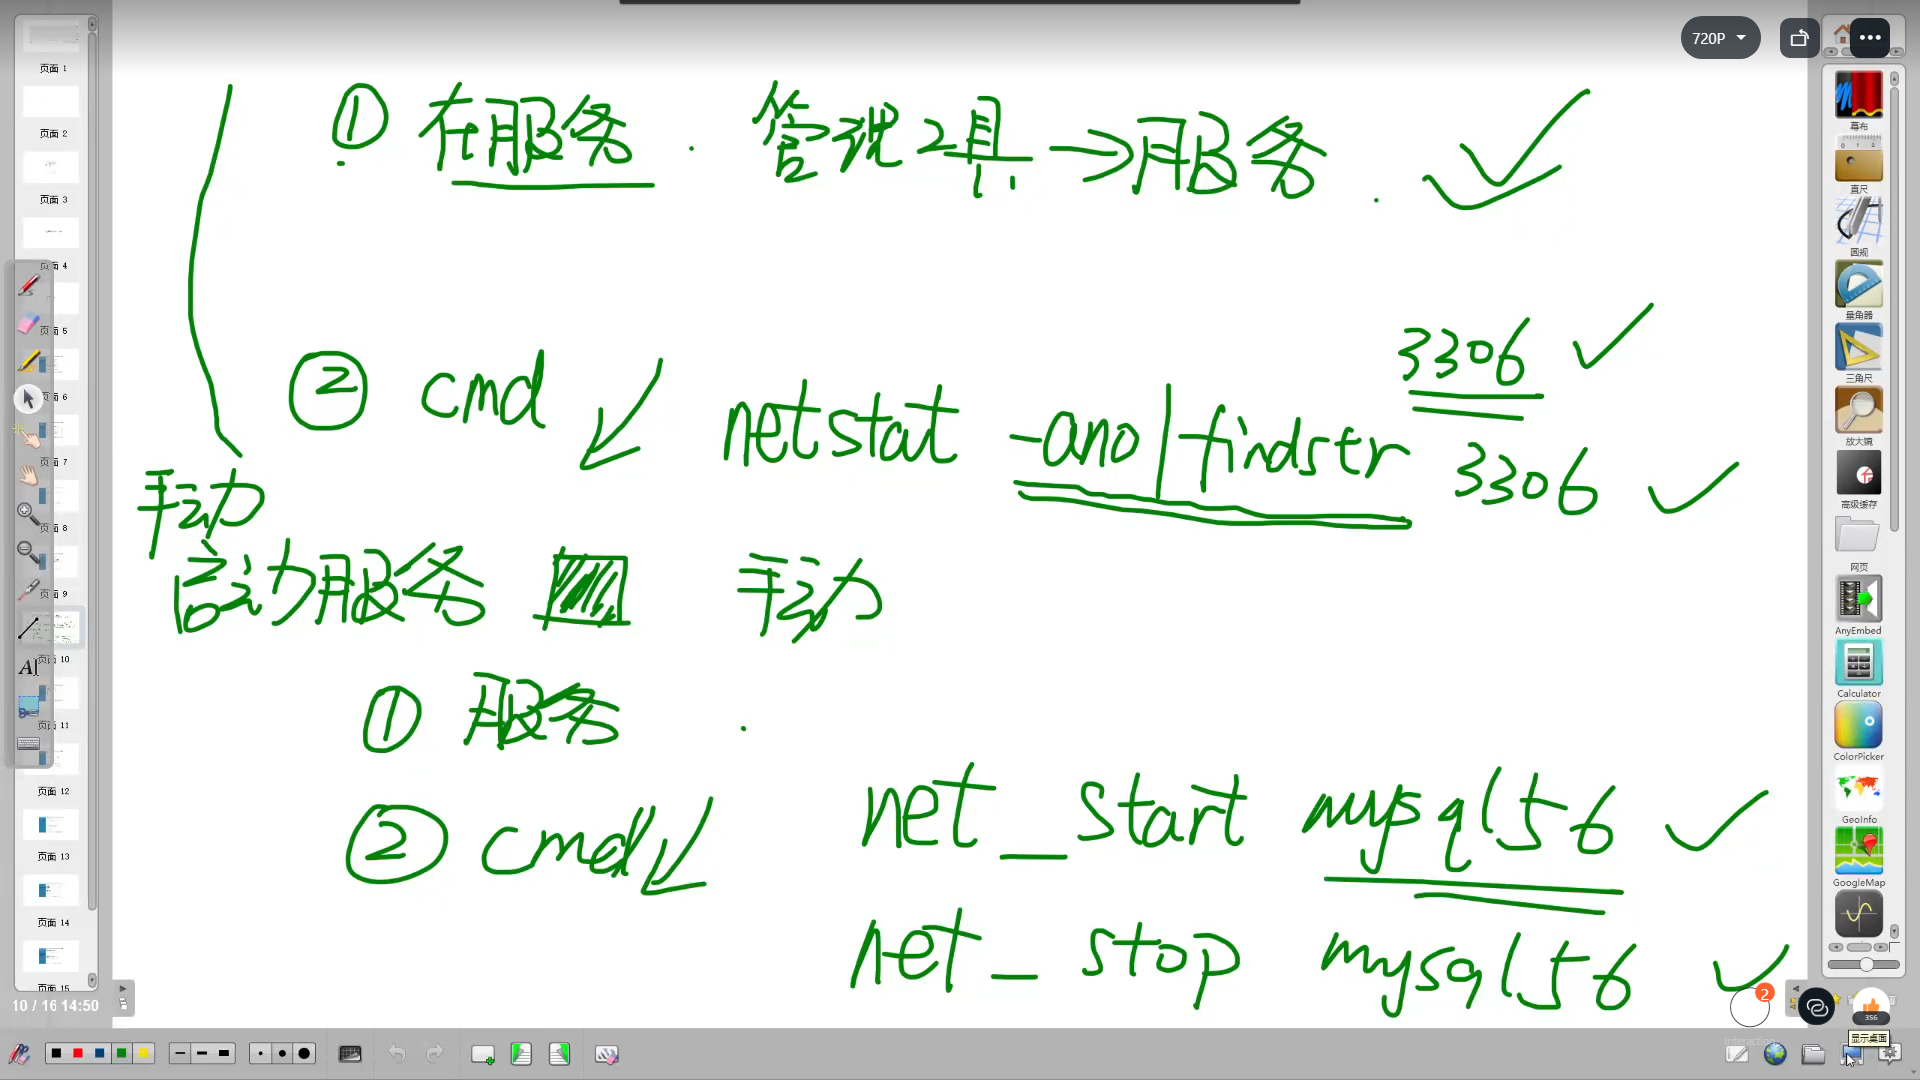 720P
页面 1
页面 2
页面 3
页面 4
页面 5
页面 6
页面 7
页面 8
页面 9
页面 10
页面 11
页面 12
页面 13
页面 14
页面 15
10 / 16 14:50
① 在服务 . 管理工具 → 服务 .
3306
② cmd netstat -ano|findstr 3306
手动
启动服务 手动
① 服务
② cmd net _ start mysql56
net _ stop mysql56
幕布
直尺
圆规
量角器
三角尺
放大镜
高级缓存
网页
AnyEmbed
Calculator
ColorPicker
GeoInfo
GoogleMap
2
356
显示桌面
Interaction